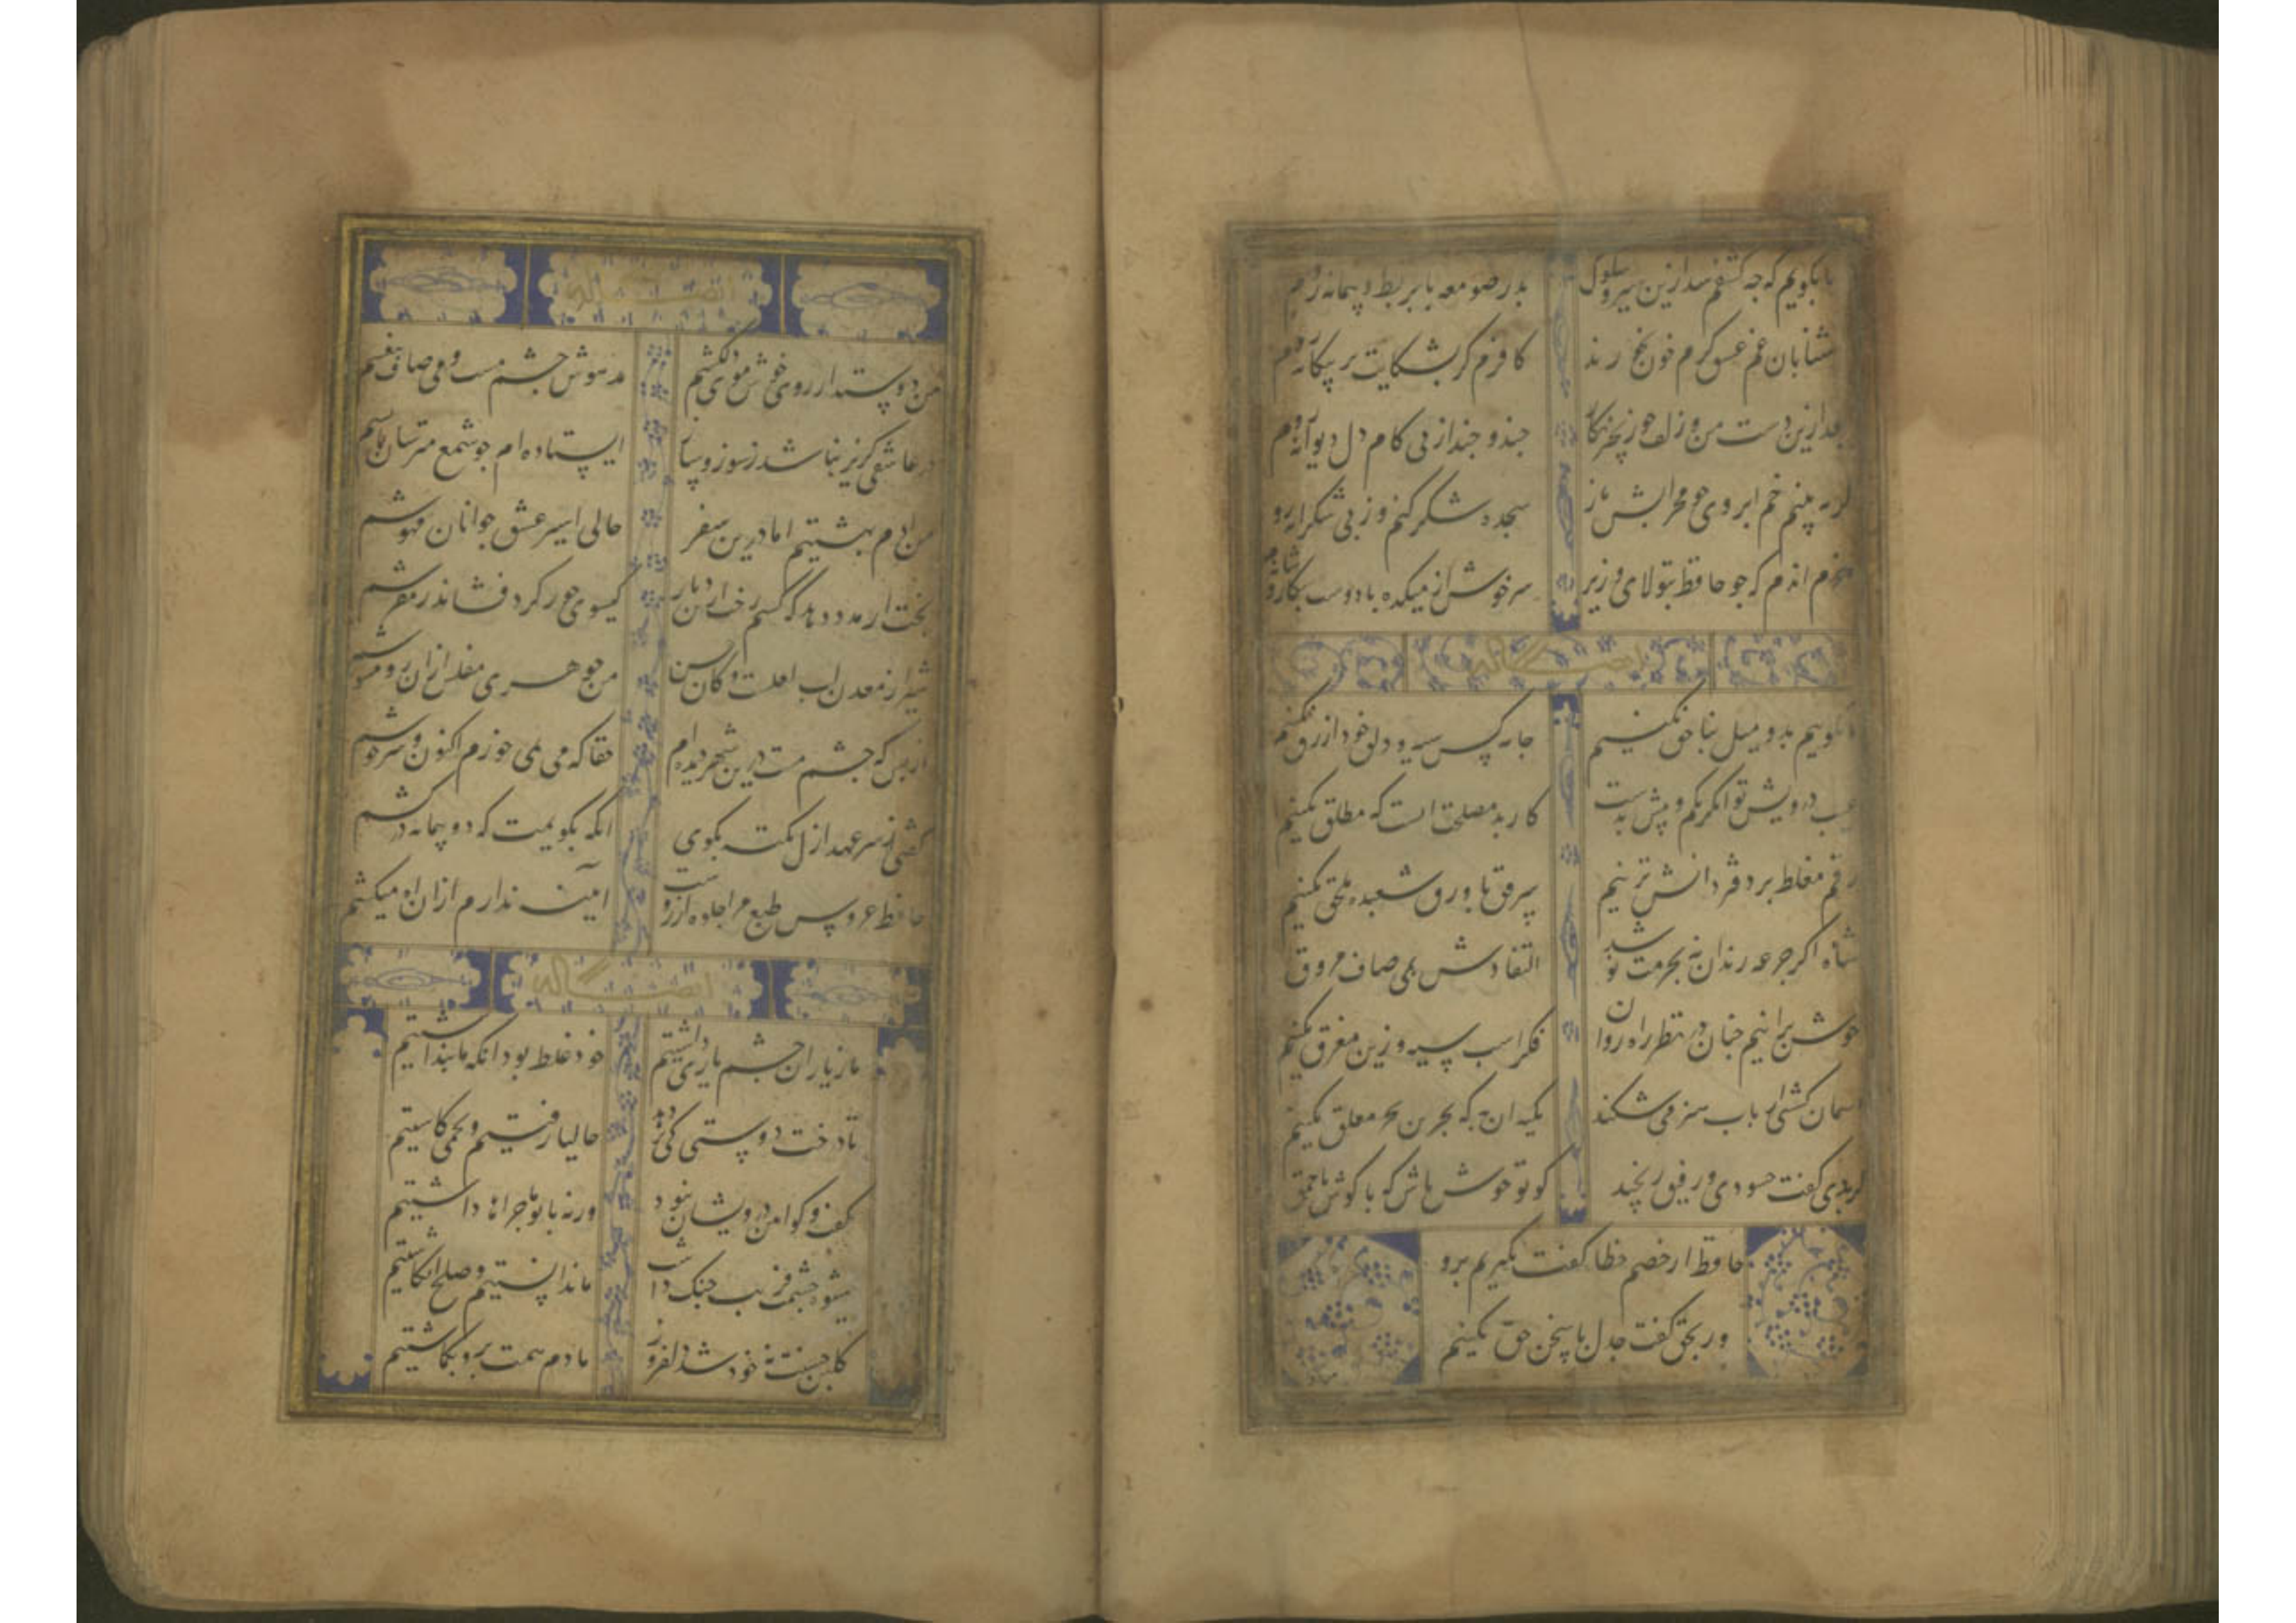 بابگویم که چه کشفم شد ازین سیر و سلوک بدر صومعه با بربط و پیمانه روم
آشنایان غم عشق گرم خون بخورند کافرم گر بشکایت بر بیگانه روم
بعد ازین دست من و زلف چو زنجیر نگار چند و چند از پی کام دل دیوانه روم
گر به بینم خم ابروی چو محرابش باز سجده شکر کنم وز پی شکرانه روم
خرم اندم که چو حافظ بتولای وزیر سرخوش از میکده با دوست بکاشانه روم
ایضا له
ما نگوییم بد و میل بناحق نکنیم جامه کس سیه و دلق خود ازرق نکنیم
عیب درویش و توانگر بکم و بیش بدست کار بد مصلحت انست که مطلق نکنیم
رقم مغلطه بر دفتر دانش نزنیم سر حق با ورق شعبده ملحق نکنیم
شاه اگر جرعه رندان نه بحرمت نوشد التفاتش بمی صاف مروق
خوش برانیم جهان در نظر راه روان فکر اسب سیه و زین مغرق نکنیم
اسمان کشتی ارباب هنر می شکند تکیه ان به که برین بحر معلق نکنیم
گر بدی گفت حسودی و رفیقی رنجید گو تو خوش باش که ما گوش باحمق
حافظ ار خصم خطا گفت نگیریم برو
ور بحق گفت جدل با سخن حق نکنیم
ایضا له
من دوستدار روی خوش و موی دلکشم مدهوش چشم مست و می صاف بیغشم
در عاشقی گریز نباشد ز سوز و ساز ایستاده ام چو شمع مترسان ز آتشم
من ادم بهشتیم اما درین سفر حالی اسیر عشق جوانان مهوشم
بخت ار مدد دهد که کشم رخت ازین دیار گیسوی حور گرد فشاند ز مفرشم
شیراز معدن لب لعلست و کان حسن من جوهری مفلسم از ان رو مشوشم
از بس که چشم مست درین شهر دیده ام حقا که می نمی خورم اکنون و سرخوشم
گفتی ز سر عهد ازل نکته بگوی انگه بگویمت که دو پیمانه درکشم
حافظ عروس طبع مرا جلوه ارزوست ایینه ندارم از ان اه میکشم
ایضا له
ما ز یاران چشم یاری داشتیم خود غلط بود انکه ما پنداشتیم
تا درخت دوستی کی بر دهد حالیا رفتیم و تخمی کاشتیم
گفت و گو ایین درویشان نبود ورنه با تو ماجراها داشتیم
شیوه چشمت فریب جنگ داشت ما ندانستیم و صلح انگاشتیم
گلبن حسنت نه خود شد دلفروز ما دم همت برو بگماشتیم